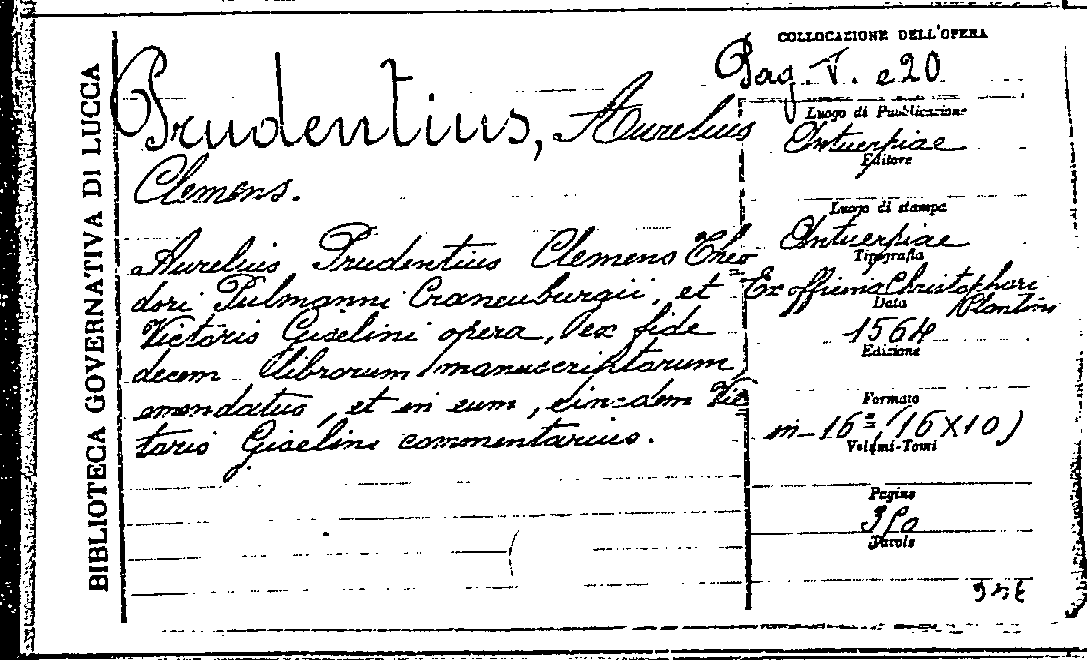 BIBLIOTECA GOVERNATIVA DI LUCCA
Prudentius, Aurelius
Clemens.
Aurelius Prudentius Clemens Theo
dori Pulmanni Craneuburgii, et
Victoris Giselini opera, ex fide
decem librorum manuscriptorum
emendatus, et in eum, eiusdem Vic
toris Giselini commentarius.
COLLOCAZIONE DELL'OPERA
Pag. T. e 20
Luogo di Pubblicazione
Antuerpiae
Editore
Luogo di stampa
Antuerpiae
Tipografia
Ex officina Christophori
Plantini
Data
1564
Edizione
Formato
in-16° (16X10)
Volumi-Tomi
Pagine
Tavole